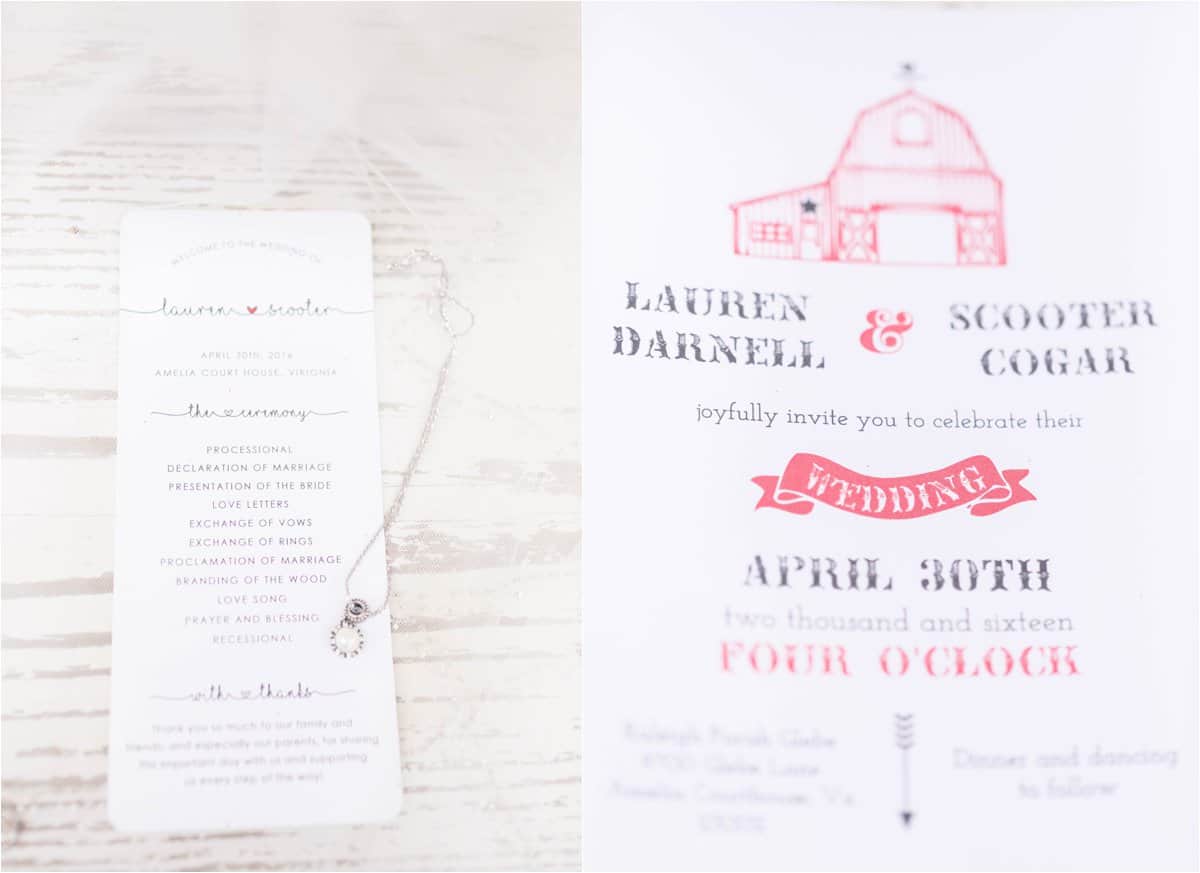 WELCOME TO THE WEDDING OF
lauren scooter
APRIL 30TH, 2016
AMELIA COURT HOUSE, VIRGINIA
the ceremony
PROCESSIONAL
DECLARATION OF MARRIAGE
PRESENTATION OF THE BRIDE
LOVE LETTERS
EXCHANGE OF VOWS
EXCHANGE OF RINGS
PROCLAMATION OF MARRIAGE
BRANDING OF THE WOOD
LOVE SONG
PRAYER AND BLESSING
RECESSIONAL
with thanks
thank you so much to our family and
friends, and especially our parents, for sharing
this important day with us and supporting
us every step of the way!
LAUREN
DARNELL
&
SCOOTER
COGAR
joyfully invite you to celebrate their
WEDDING
APRIL 30TH
two thousand and sixteen
FOUR O'CLOCK
Raleigh Parish Glebe
Glebe Lane
Amelia Courthouse, Va
Dinner and dancing
to follow